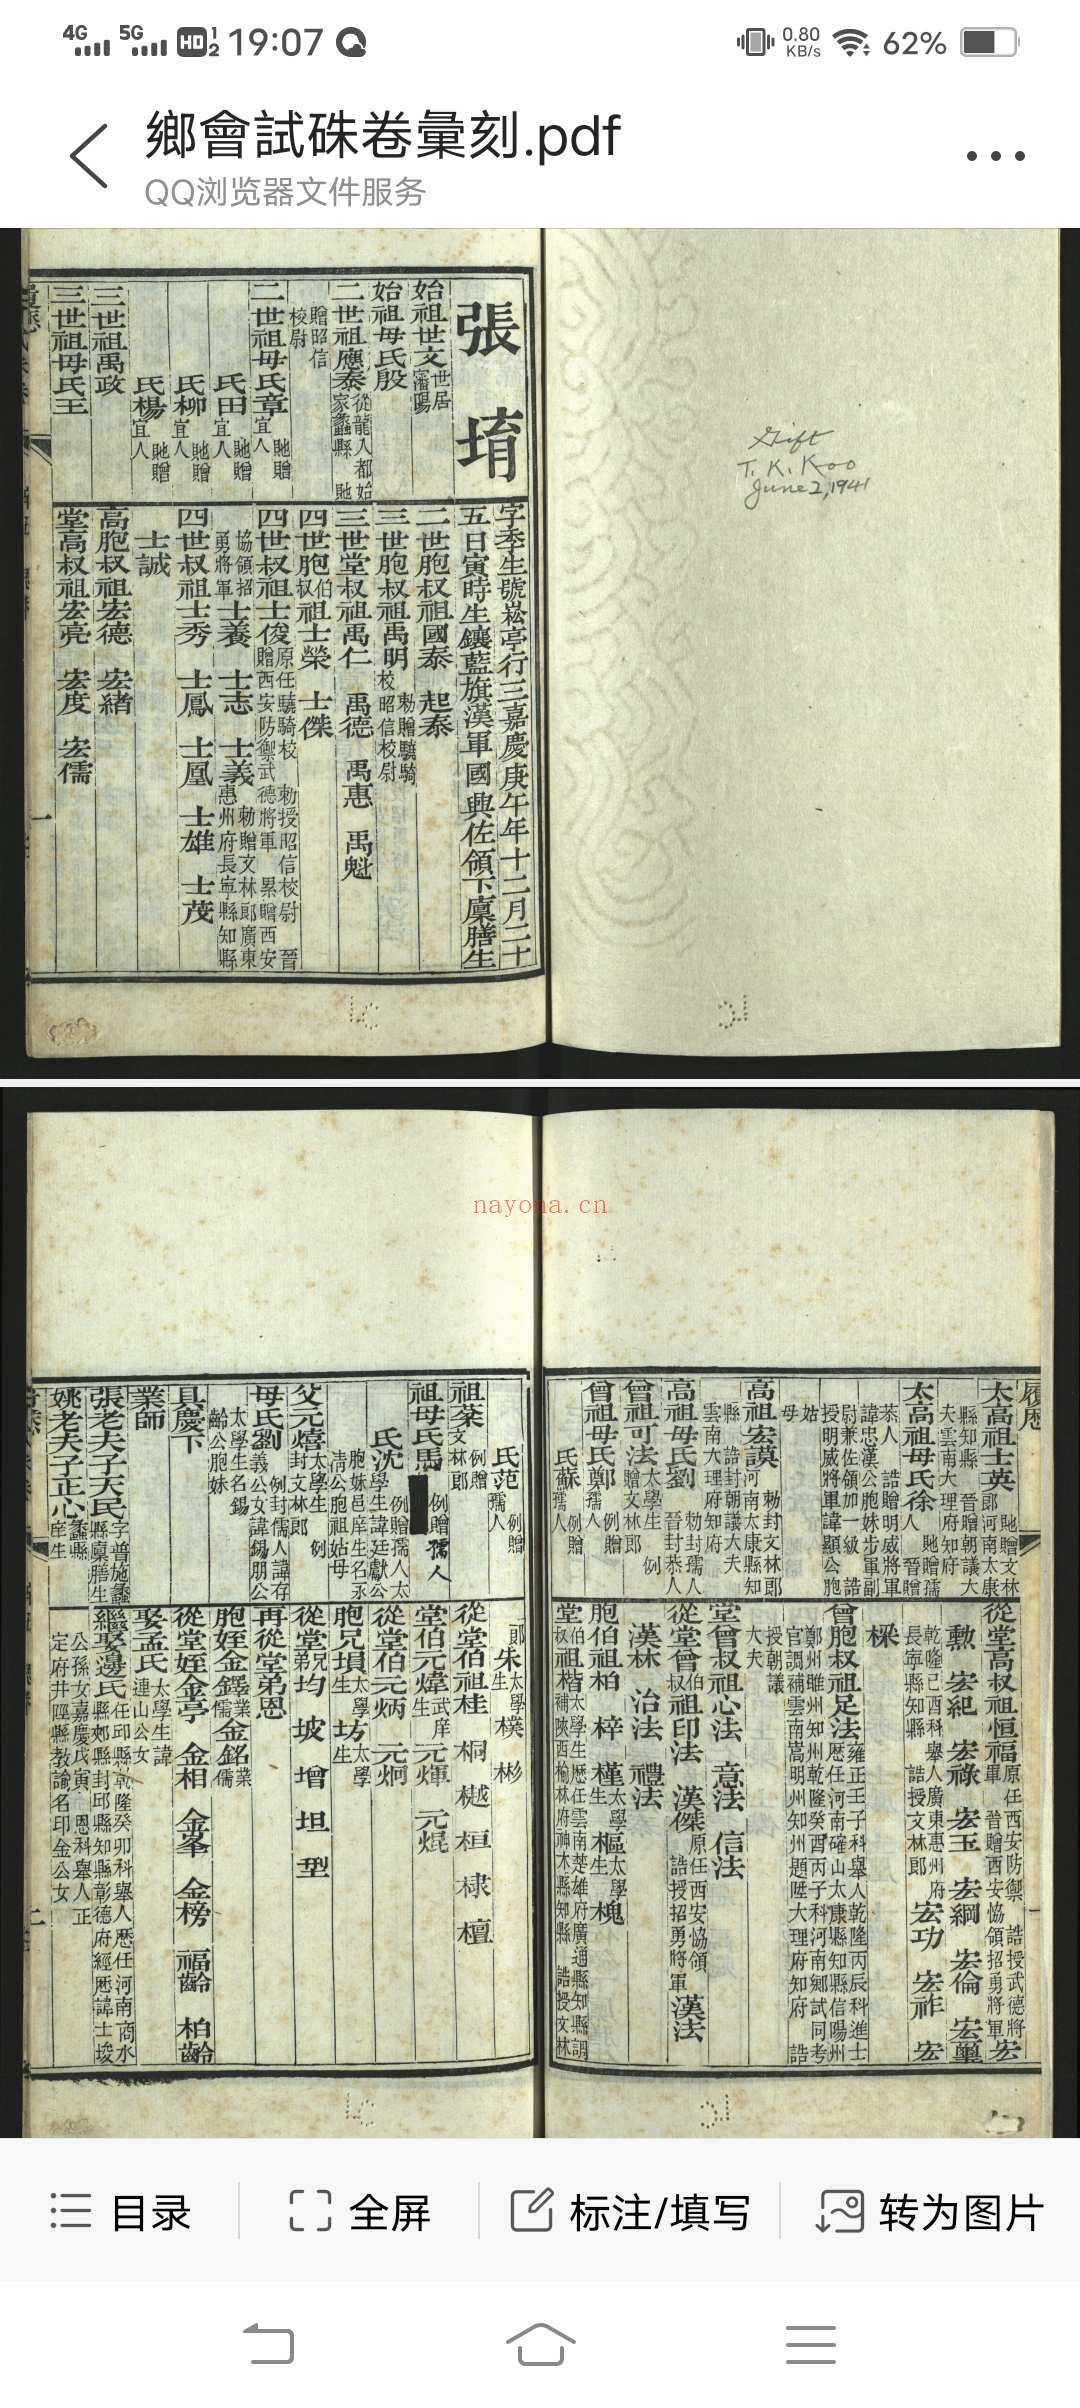 4G 5G HD 1 2 19:07
0.80 KB/s 62%
鄉會試硃卷彙刻.pdf
QQ浏览器文件服务
Gift
T. K. Koo
June 2, 1941
張堉
字季生號崧亭行三嘉慶庚午年十二月二十
五日寅時生鑲藍旗漢軍國興佐領下廩膳生
始祖世文世居瀋陽
始祖母氏殷
二世祖應泰從龍入都始家蠡縣 貤
贈昭信校尉
二世祖母氏章貤贈宜人
氏田貤贈宜人
氏柳貤贈宜人
氏楊貤贈宜人
三世祖禹政
三世祖母氏王
二世胞叔祖國泰 起泰
三世胞叔祖禹明勑贈驍騎校昭信校尉
三世堂叔祖禹仁 禹德 禹惠 禹魁
四世胞伯叔祖士榮 士傑
四世叔祖士俊原任驍騎校 勅授昭信校尉 晉贈西安防禦武德將軍 累贈西安
協領招勇將軍士養 士志 士義勅贈文林郎廣東惠州府長寧縣知縣
四世叔祖士秀 士鳳 士凰 士雄 士茂
士誠
高胞叔祖宏德 宏緒
堂高叔祖宏亮 宏度 宏儒
nayona.cn
履歷
太高祖士英貤贈文林郎河南太康
縣知縣 晉贈朝議大夫雲南大理府知府
太高祖母氏徐貤贈孺人 晉贈
恭人 誥贈明威將軍諱忠漢公胞妹步軍副
尉兼佐領加一級 誥授明威將軍諱顯公胞
姑母
高祖宏謨勅封文林郎河南太康縣知
縣 誥封朝議大夫雲南大理府知府
高祖母氏劉勅封孺人 晉封恭人
曾祖可法太學生 例贈文林郎
曾祖母氏鄭例贈孺人
氏蘇例贈孺人
從堂高叔祖恒福原任西安防禦 誥授武德將軍 晉贈西安協領招勇將軍宏
勳 宏紀 宏祿 宏玉 宏綱 宏倫 宏璽
乾隆己酉科舉人廣東惠州府長寧縣知縣 誥授文林郎宏功 宏祚 宏
樑
曾胞叔祖足法雍正壬子科舉人乾隆丙辰科進士歷任河南確山太康縣知縣信陽州
鄭州睢州知州乾隆癸酉丙子科河南鄉試同考官調補雲南嵩明州知州題陞大理府知府 誥
授朝議大夫
堂曾叔祖心法 意法 信法
從堂曾伯叔祖印法 漢傑原任西安協領 誥授招勇將軍漢法
漢林 治法 禮法
胞伯祖柏 梓 槿太學生樞太學生槐
堂伯叔祖楷太學生歷任雲南楚雄府廣通縣知縣調補陝西榆林府神木縣知縣 誥授文林
氏范例贈孺人
祖棻例贈文林郎
祖母氏馬例贈孺人
氏沈例贈孺人太學生諱廷獻公
胞妹邑庠生名永清公胞祖姑母
父元熺太學生 例封文林郎
母氏劉例封孺人諱存義公女諱錫朋公
太學生名錫齡公胞妹
具慶下
業師
張老夫子天民字普施蠡縣廩膳生
姚老夫子正心蠡縣庠生
郎朱太學生樸 彬
從堂伯祖桂 桐 樾 桓 棣 檀
堂伯元煒武庠生元煇 元焜
從堂伯元炳 元炯
胞兄塤太學生坊太學生
從堂兄弟均 坡 增 坦 型
再從堂弟恩
胞姪金鐸業儒金銘業儒
從堂姪金亭 金相 金峯 金榜 福齡 柏齡
娶孟氏太學生諱連山公女
繼娶邊氏任邱縣乾隆癸卯科舉人歷任河南商水縣郟縣封邱縣知縣彰德府經歷諱士堎
公孫女嘉慶戊寅 恩科舉人正定府井陘縣教諭名印金公女
目录 全屏 标注/填写 转为图片